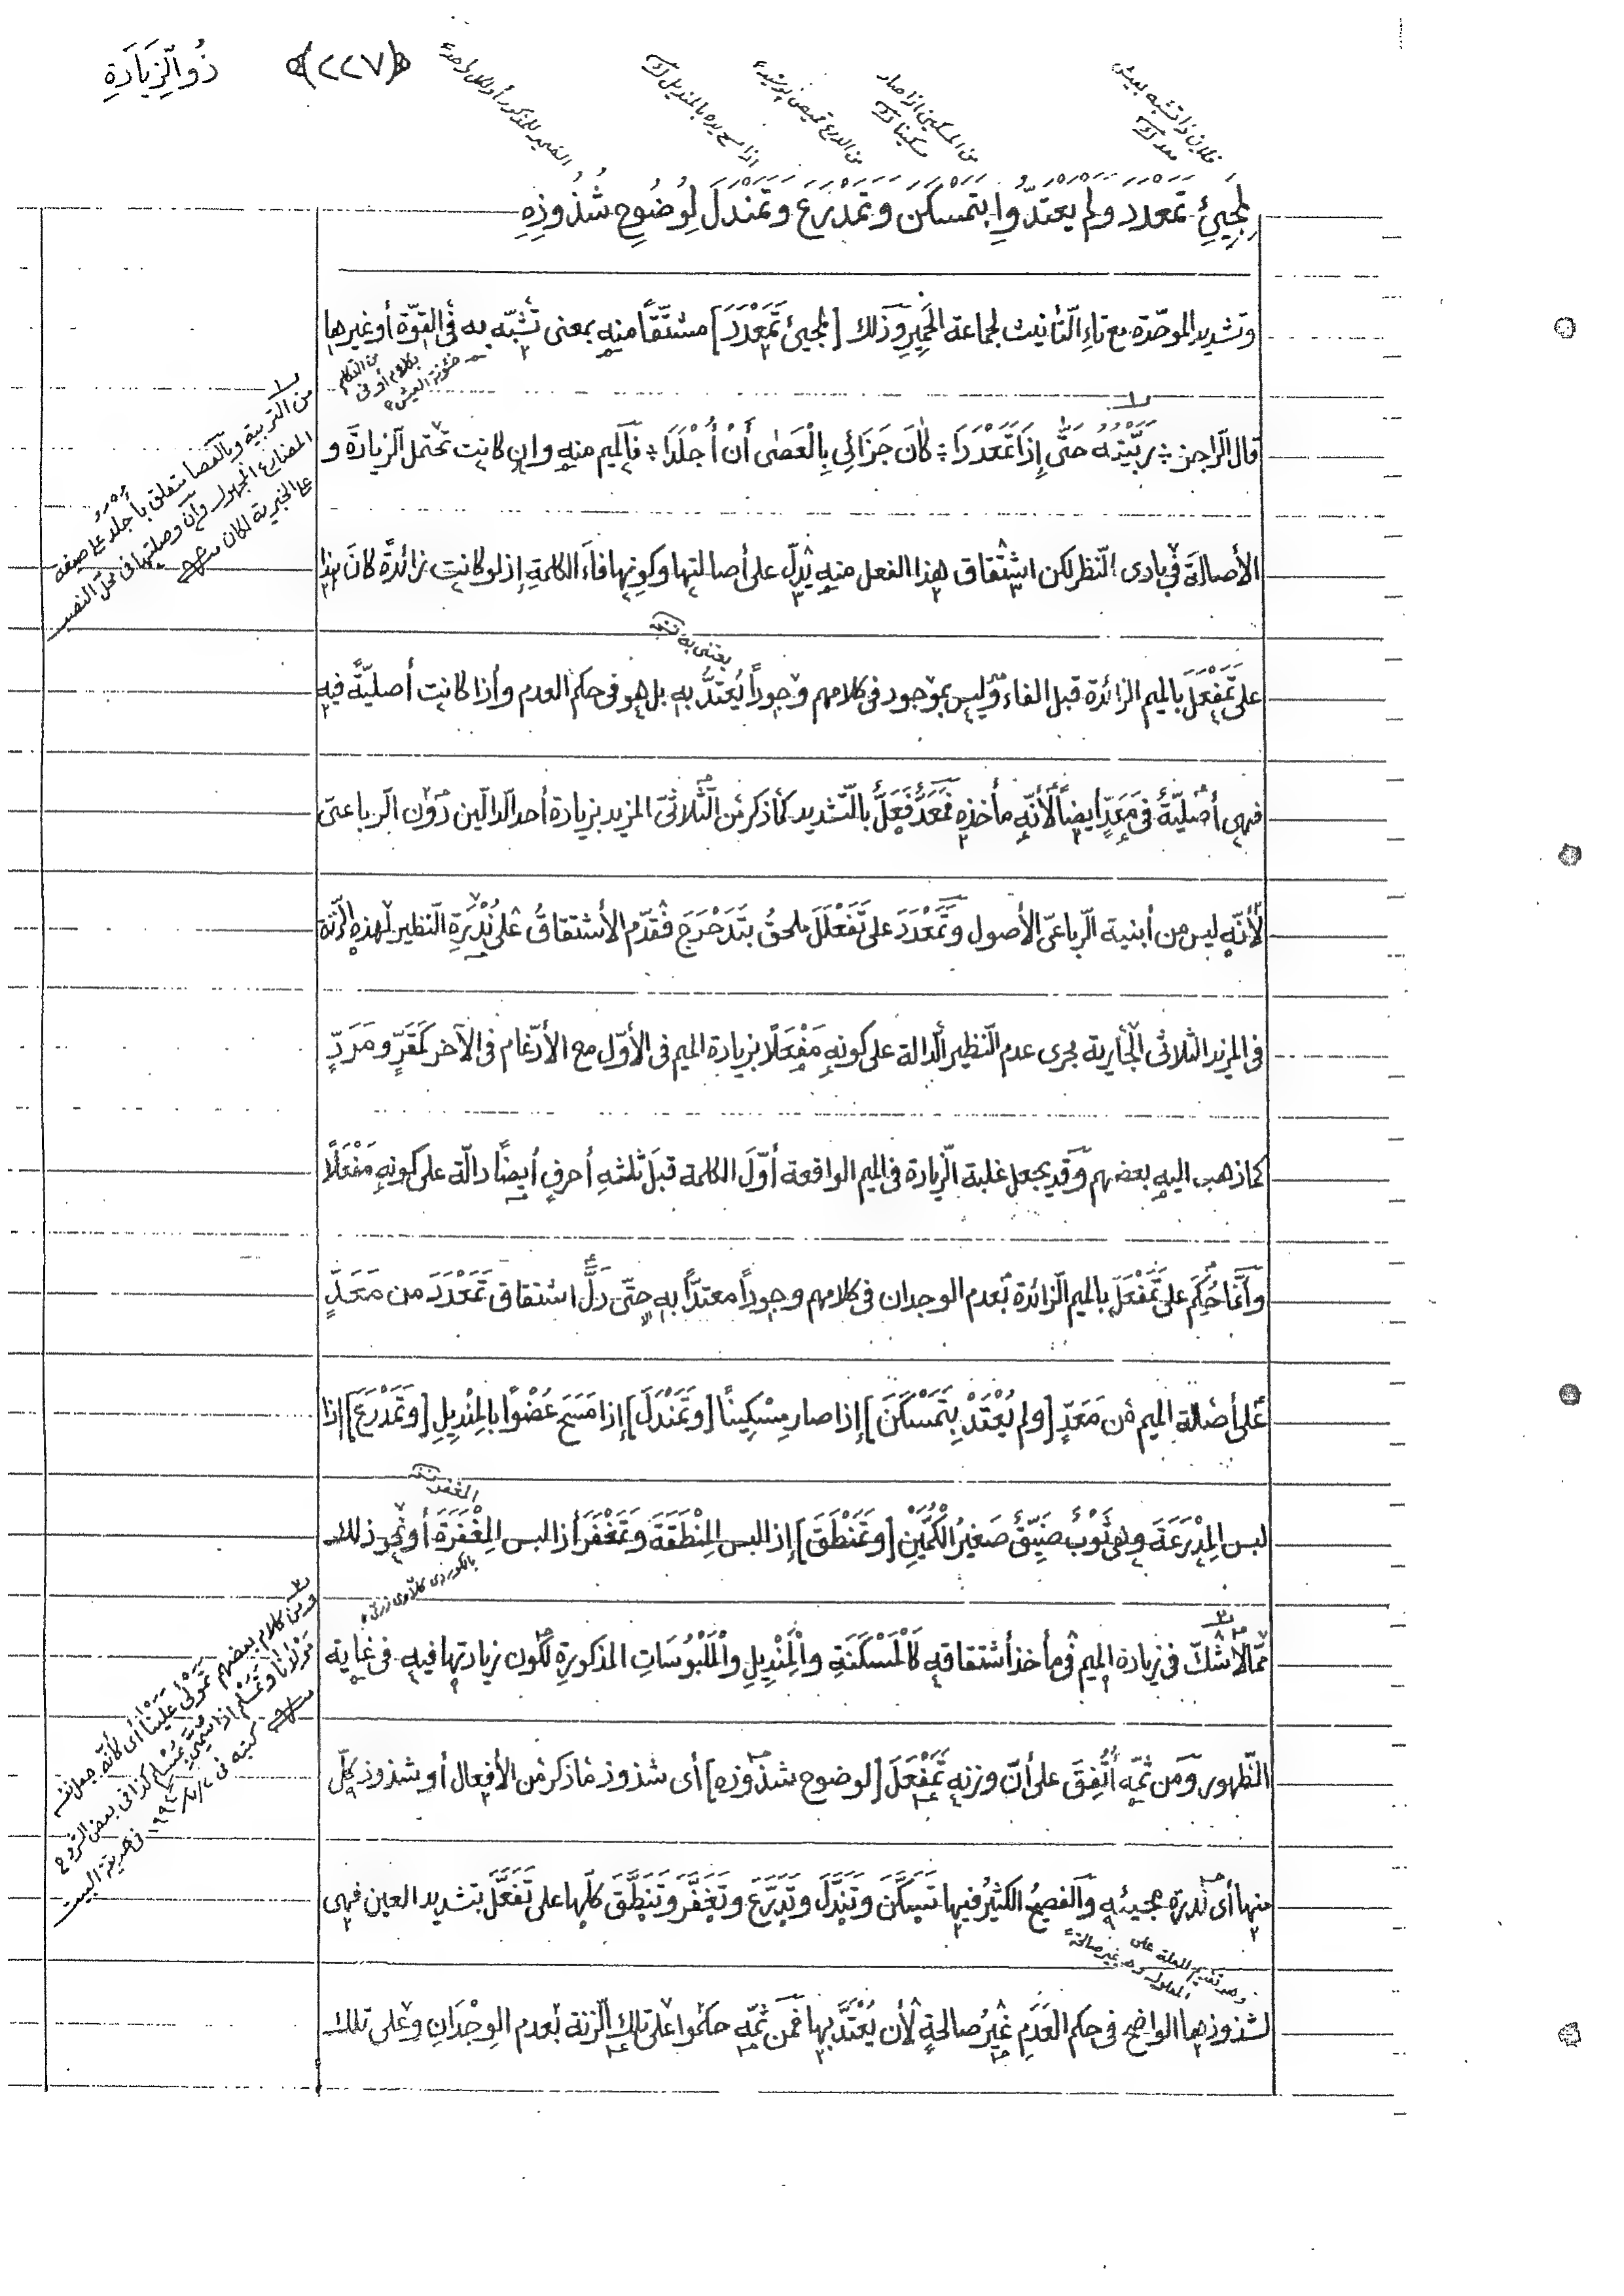 ذُو الزِّيَادَةِ
﴿٢٢٧﴾
فلان إذا تشبه بعيش معد
من المسكين إذا صار مسكينا
من الدرع قميص پوشيد
إذا مسح يده بالمنديل
الضمير للمذكور أو لكل واحد
لِمَجِيْئِ تَمَعْدَدَ وَلَمْ يَعْتَدُّوا بِتَمَسْكَنَ وَتَمَدْرَعَ وَتَمَنْدَلَ لِوُضُوحِ شُذُوذِهِ
وتشديد الموحّدة مع تاءِ التّأنيث لجماعة الحَمِيرِ وذلك [لمجيئ تَمَعْدَدَ] مشتقّاً منه بمعنى تشبّه به في القوّة أو غيرها
من التكلم بكلامه أو في خشونة العيش
قال الرّاجز ؛ رَبَّيْتُهُ حَتَّى إِذَا تَمَعْدَدَا ؛ كَانَ جَزَائِي بِالْعَصَى أَنْ أُجْلَدَا ؛ فالميم منه وإن كانت تحتمل الزيادة و
الأصالة في بادى النّظر لكن اشتقاق هذا الفعل منه يدلّ على أصالتها وكونها فاءَ الكلمةِ إذ لو كانت زائدةً كانَ هذا
يعتنى به
على تَمَفْعَلَ بالميم الزائدة قبل الفاء وليس بموجود في كلامهم وجوداً يُعتدُّ به بل هو في حكم العدم وإذا كانت أصليّةً فيه
فهى أصليّةٌ في مَعَدٍّ أيضاً لأنّه مأخذه فمَعَدٌّ فَعَلٌّ بالتّشديد كما ذكر من الثّلاثيّ المزيد بزيادة أحد الدالّين دون الرّباعيّ
لأنّه ليس من أبنية الرّباعيّ الأصول وتَمَعْدَدَ على تَفَعْلَلَ ملحقٌ بتَدَحْرَجَ فقدّم الأشتقاقُ على نُدْرَةِ النّظير لهذه الزنة
في المزيد الثلاثى الجارية مجرى عدم النّظير الدّالة على كونه مَفْعَلًا بزيادة الميم في الأوّل مع الأدّغام في الآخر كَمَقَرٍّ ومَرَدٍّ
كما ذهب اليه بعضهم وقد يجعل غلبة الزّيادة في الميم الواقعة أوّلَ الكلمة قبلَ ثلثه أحرفٍ أيضاً دالّة على كونه مَفْعَلًا
وأنّما حُكِمَ على تَمَفْعَلَ بالميم الزّائدة بعدم الوجدان في كلامهم وجوداً معتدّاً به حتّى دَلَّ اشتقاق تَمَعْدَدَ من مَعَدٍّ
على أصالة الميم من مَعَدٍّ [ولم يُعْتَدْ بِتَمَسْكَنَ] إذا صار مِسْكِيناً [وتَمَنْدَلَ] إذا مَسَحَ عُضْواً بالمِنْدِيلِ [وتَمَدْرَعَ] إذا
المغفر
لبس المِدْرَعَةَ وهى ثَوْبٌ ضَيِّقٌ صَغِيرُ الكُمَّيْنِ [وتَمَنْطَقَ] إذ البس المِنْطَقَةَ وتَمَغْفَرَ أذا لبس المِغْفَرَةَ أو نحو ذلك
ممّا لا شكّ في زيادة الميم في مأخذ أشتقاقه كالْمَسْكَنَةِ والْمِنْدِيلِ والْمَلْبُوسَاتِ المذكورةِ لكون زيادتها فيه في غاية
الظّهور ومن ثمّه أُتُّفِقَ على أنّ وزنه تَمَفْعَلَ [لوضوح شذوذه] أى شذوذ ما ذكر من الأفعال أو شذوذ كلّ
منها أى ندرة مجيئه والفصيحُ الكثيرُ فيها تَسَكَّنَ وتَنَدَّلَ وتَدَرَّعَ وتَغَفَّرَ وتَنَطَّقَ كلّها على تَفَعَّلَ بتشديد العين فهى
لشذوذها الواضح في حكم العَدَمِ غيرُ صالحةٍ لأن يُعْتَدَّ بها فمن ثمّه حكموا على تلك الزّنة بعدم الوِجْدَانِ وعلى تلك
من التربية وبالعصا متعلق بأجلد على صيغة
المضارع المجهول وأن وصلتها في محل النصب
على الخبرية لكان
ومن كلام بعضهم تَمَوْلَى علينا أى كأنّه جعل نفسه
مولانا وتَمَسْلَمَ اذا سُمِّيَ بمُسْلِم كذا في بعض الشروح